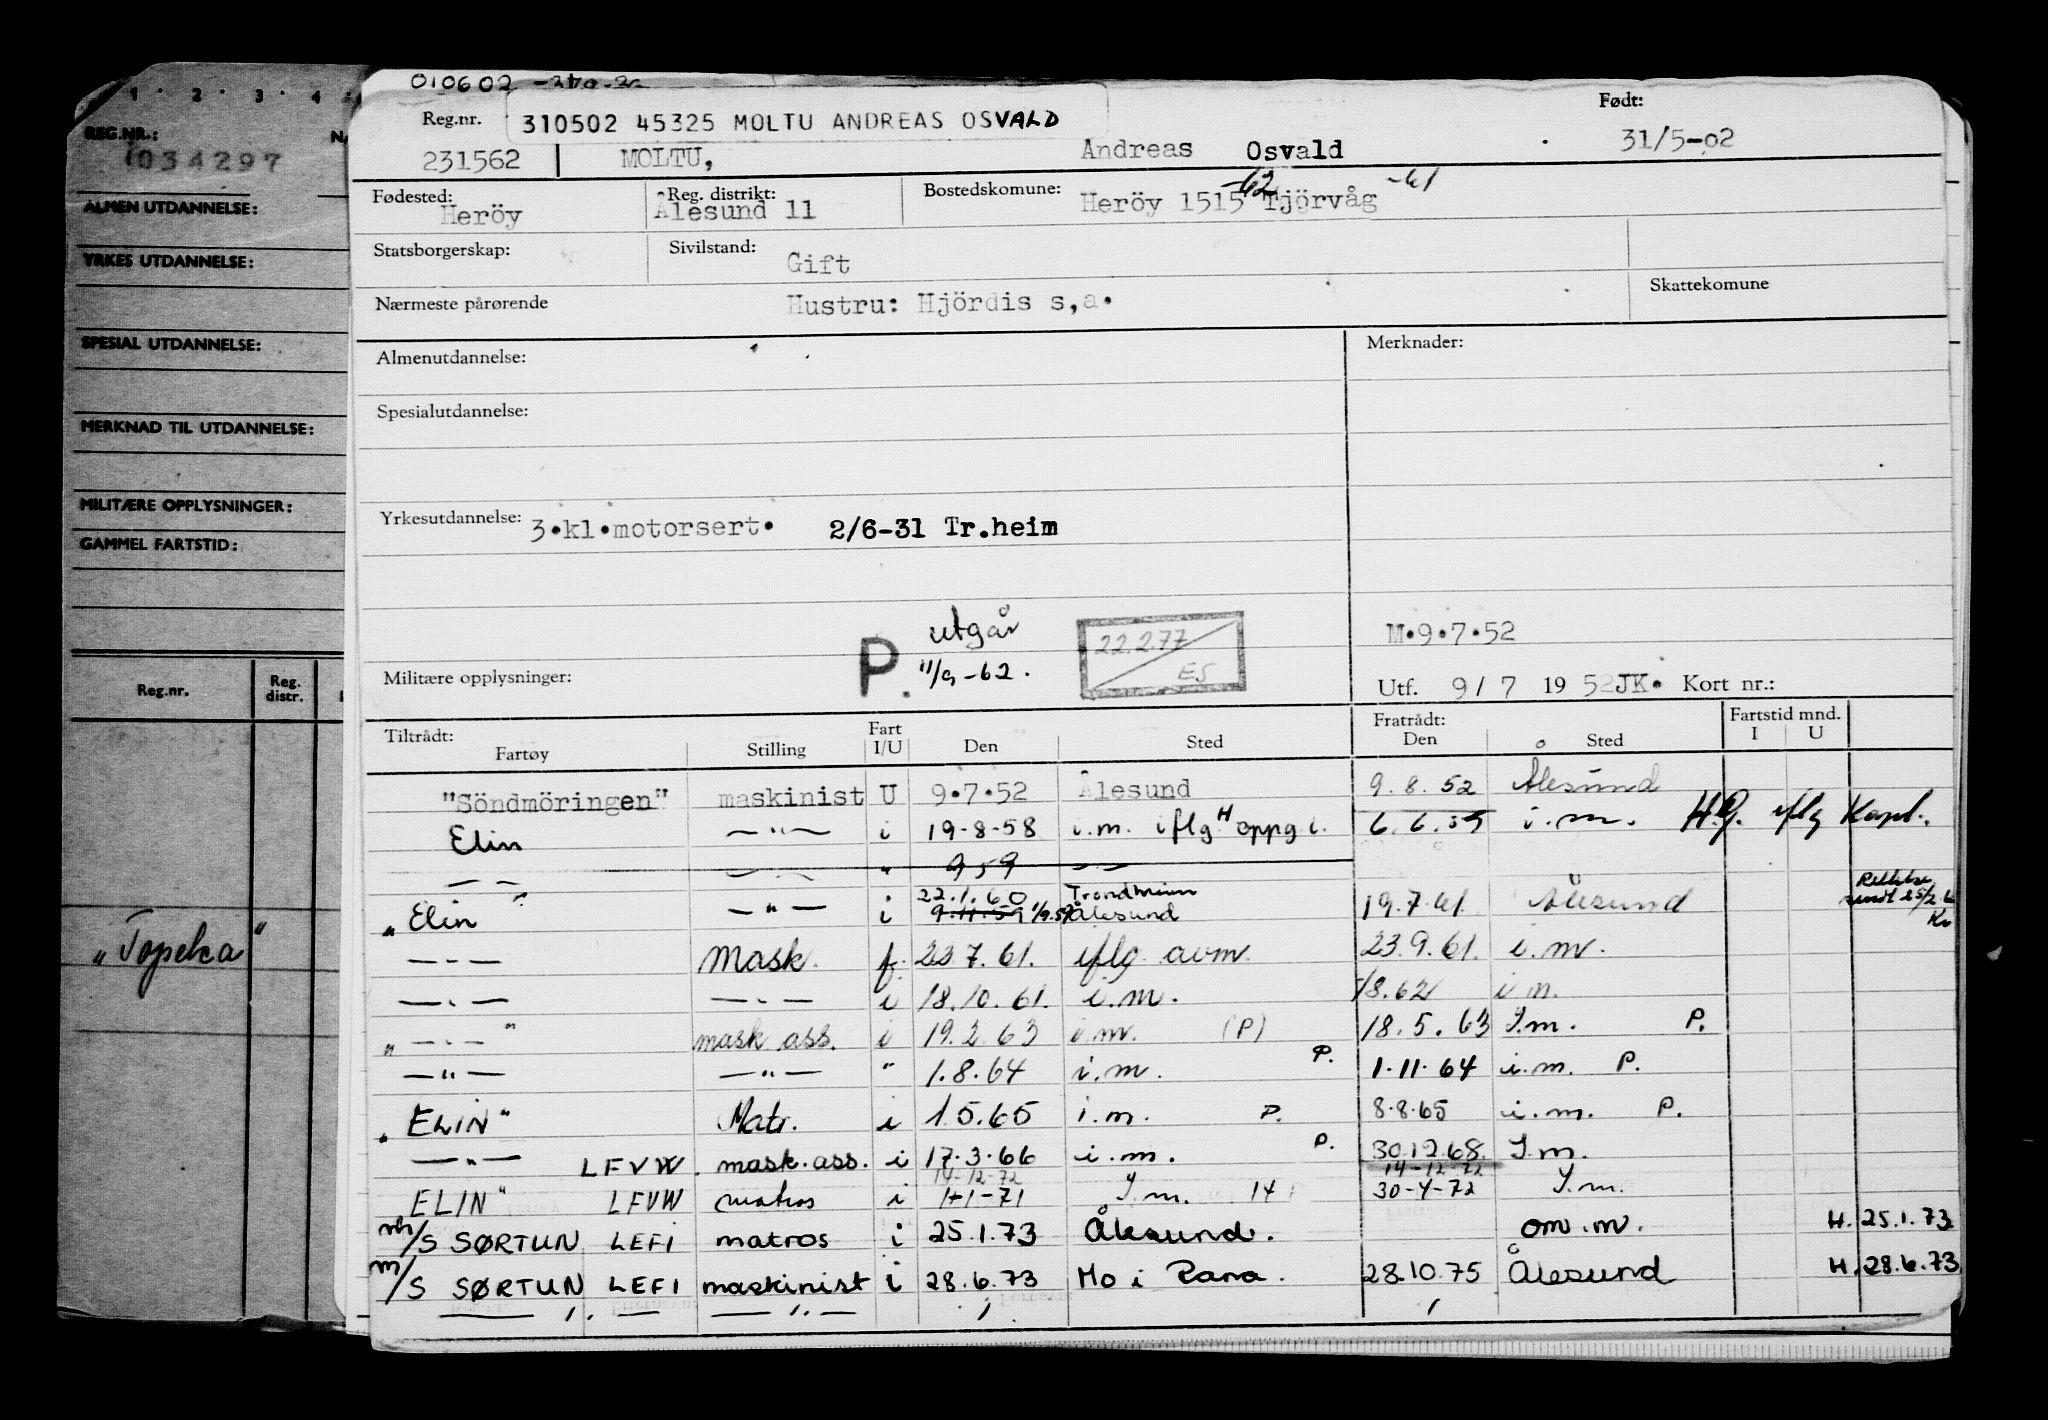 1 · 2 · 3 · 4
REG.NR.:
034297
ALMEN UTDANNELSE:
YRKES UTDANNELSE:
SPESIAL UTDANNELSE:
MERKNAD TIL UTDANNELSE:
MILITÆRE OPPLYSNINGER:
GAMMEL FARTSTID:
Reg.nr. Reg. distr.
"Topeka"
010602
Reg.nr. 310502 45325 MOLTU ANDREAS OSVALD Født:
231562 MOLTU, Andreas Osvald 31/5-02
Fødested: Reg. distrikt: Bostedskomune: -62 -61
Heröy Ålesund 11 Heröy 1515 Tjörvåg
Statsborgerskap: Sivilstand: Gift
Nærmeste pårørende Hustru: Hjördis s,a. Skattekomune
Almenutdannelse: Merknader:
Spesialutdannelse:
Yrkesutdannelse: 3.kl.motorsert. 2/6-31 Tr.heim
utgår
P. 11/9-62. 22.2.77 ES M.9.7.52
Militære opplysninger: Utf. 9/7 1952JK. Kort nr.:
Tiltrådt: Fart Fratrådt: Fartstid mnd.
Fartøy Stilling I/U Den Sted Den Sted I U
"Söndmöringen" maskinist U 9.7.52 Ålesund 9.8.52 Ålesund
Elin —"— i 19-8-58 i.m. iflg. H oppg. 6.6.59 i.m. H.G. iflg Kapt.
— " — " 9 59
22.1.60 Trondheim
"Elin" —"— i 9.11.59 1/9.59 Ålesund 19.7.61 Ålesund
—"— Mask. f. 22.7.61. iflg avm. 23.9.61. i.m.
—"— —"— i 18.10.61. i.m. 18.62 i.m.
" —"— " mask ass. i 19.2.63 i.m. (P) 18.5.63 I.m. P.
—"— —"— " 1.8.64 i.m. P. 1.11.64 i.m. P.
"ELIN" Matr. i 1.5.65 i.m. P. 8.8.65 i.m. P.
—"— LFVW. mask.ass. i 17.3.66 i.m. P. 30.12.68. I.m.
14-12-72 14-12-72
ELIN" LFVW matros i 1-1-71 I.m. 14 30-4-72 I.m.
m/S SØRTUN LEFI matros i 25.1.73 Ålesund. om.m. H. 25.1.73
m/S SØRTUN LEFI maskinist i 28.6.73 Mo i Rana. 28.10.75 Ålesund H. 28.6.73
—"— —"—